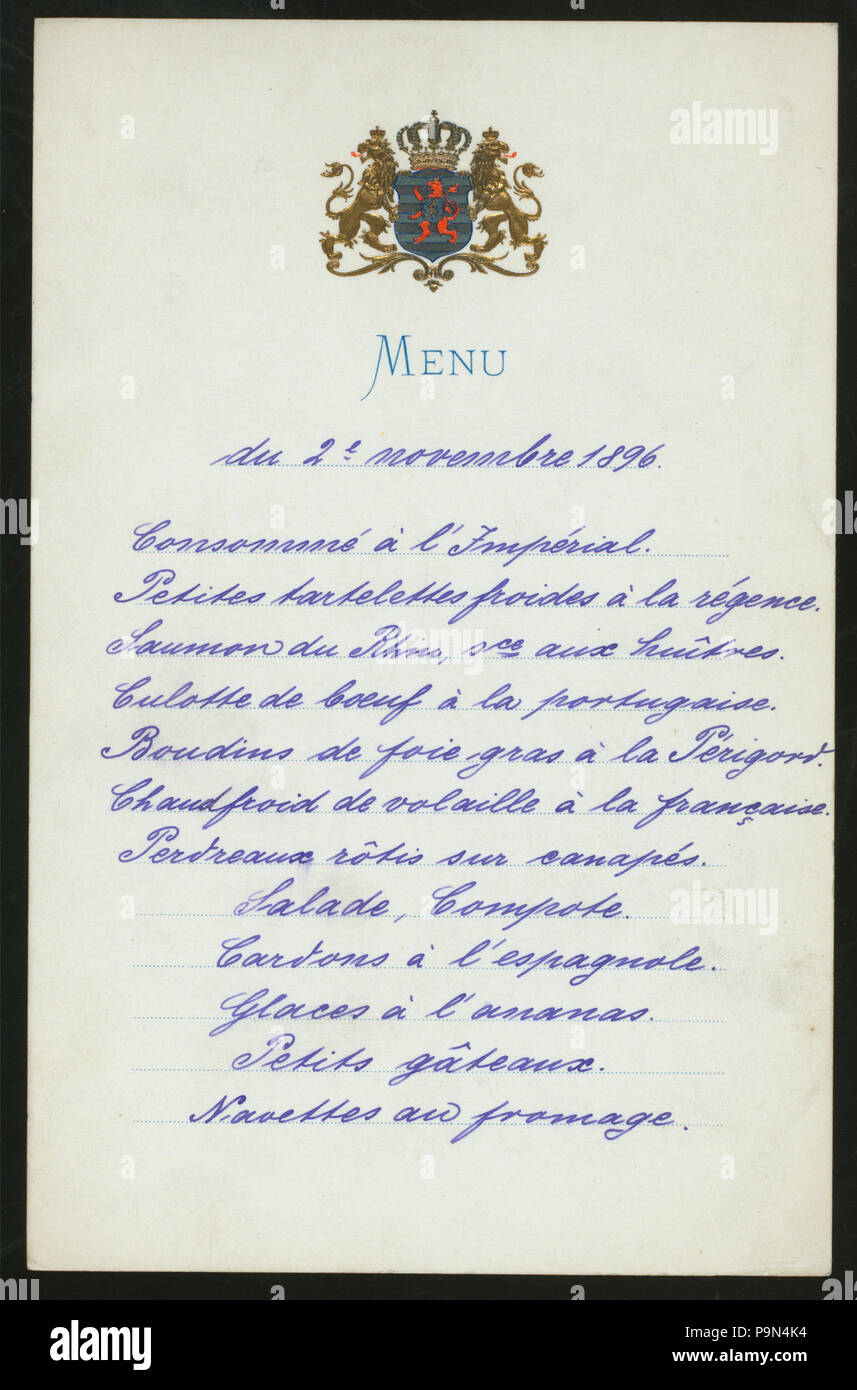 MENU
du 2e novembre 1896.
Consommé à l'Impérial.
Petites tartelettes froides à la régence.
Saumon du Rhin, sce aux huîtres.
Culotte de boeuf à la portugaise.
Boudins de foie gras à la Périgord.
Chaudfroid de volaille à la française.
Perdreaux rôtis sur canapés.
Salade, Compote.
Cardons à l'espagnole.
Glaces à l'ananas.
Petits gâteaux.
Navettes au fromage.
a
alamy
a
alamy
a
alamy stock photo
P9N4K4
www.alamy.com